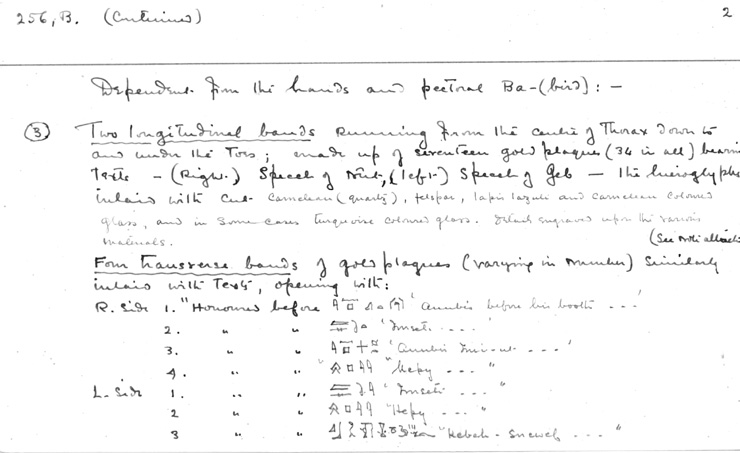 256, B. (Continued) 2
Dependent from the hands and pectoral Ba-(bird) : —
③ Two longitudinal bands running from the centre of Thorax down to
and under the Toes ; made up of seventeen gold plaques (34 in all) bearin
Texts — (Right.) Speech of Nut, (left-) Speech of Geb — the hieroglyphs
inlaid with cut carnelian (quartz), felspar, lapis lazuli and carnelian coloured
glass, and in some cases turquoise coloured glass. Details engraved upon the various
materials. (See note attach
Four transverse bands of gold plaques (varying in number) similarly
inlaid with Text, opening with :
R. Side 1. "Honoured before "Anubis before his booth ..."
2. " " "Imseti ...."
3. " " "Anubis Imi-ut. ...."
4. " " "Hepy ..."
L. Side 1. " " "Imseti ..."
2 " " "Hepy ...."
3 " " "Kebeh-snewef ..."